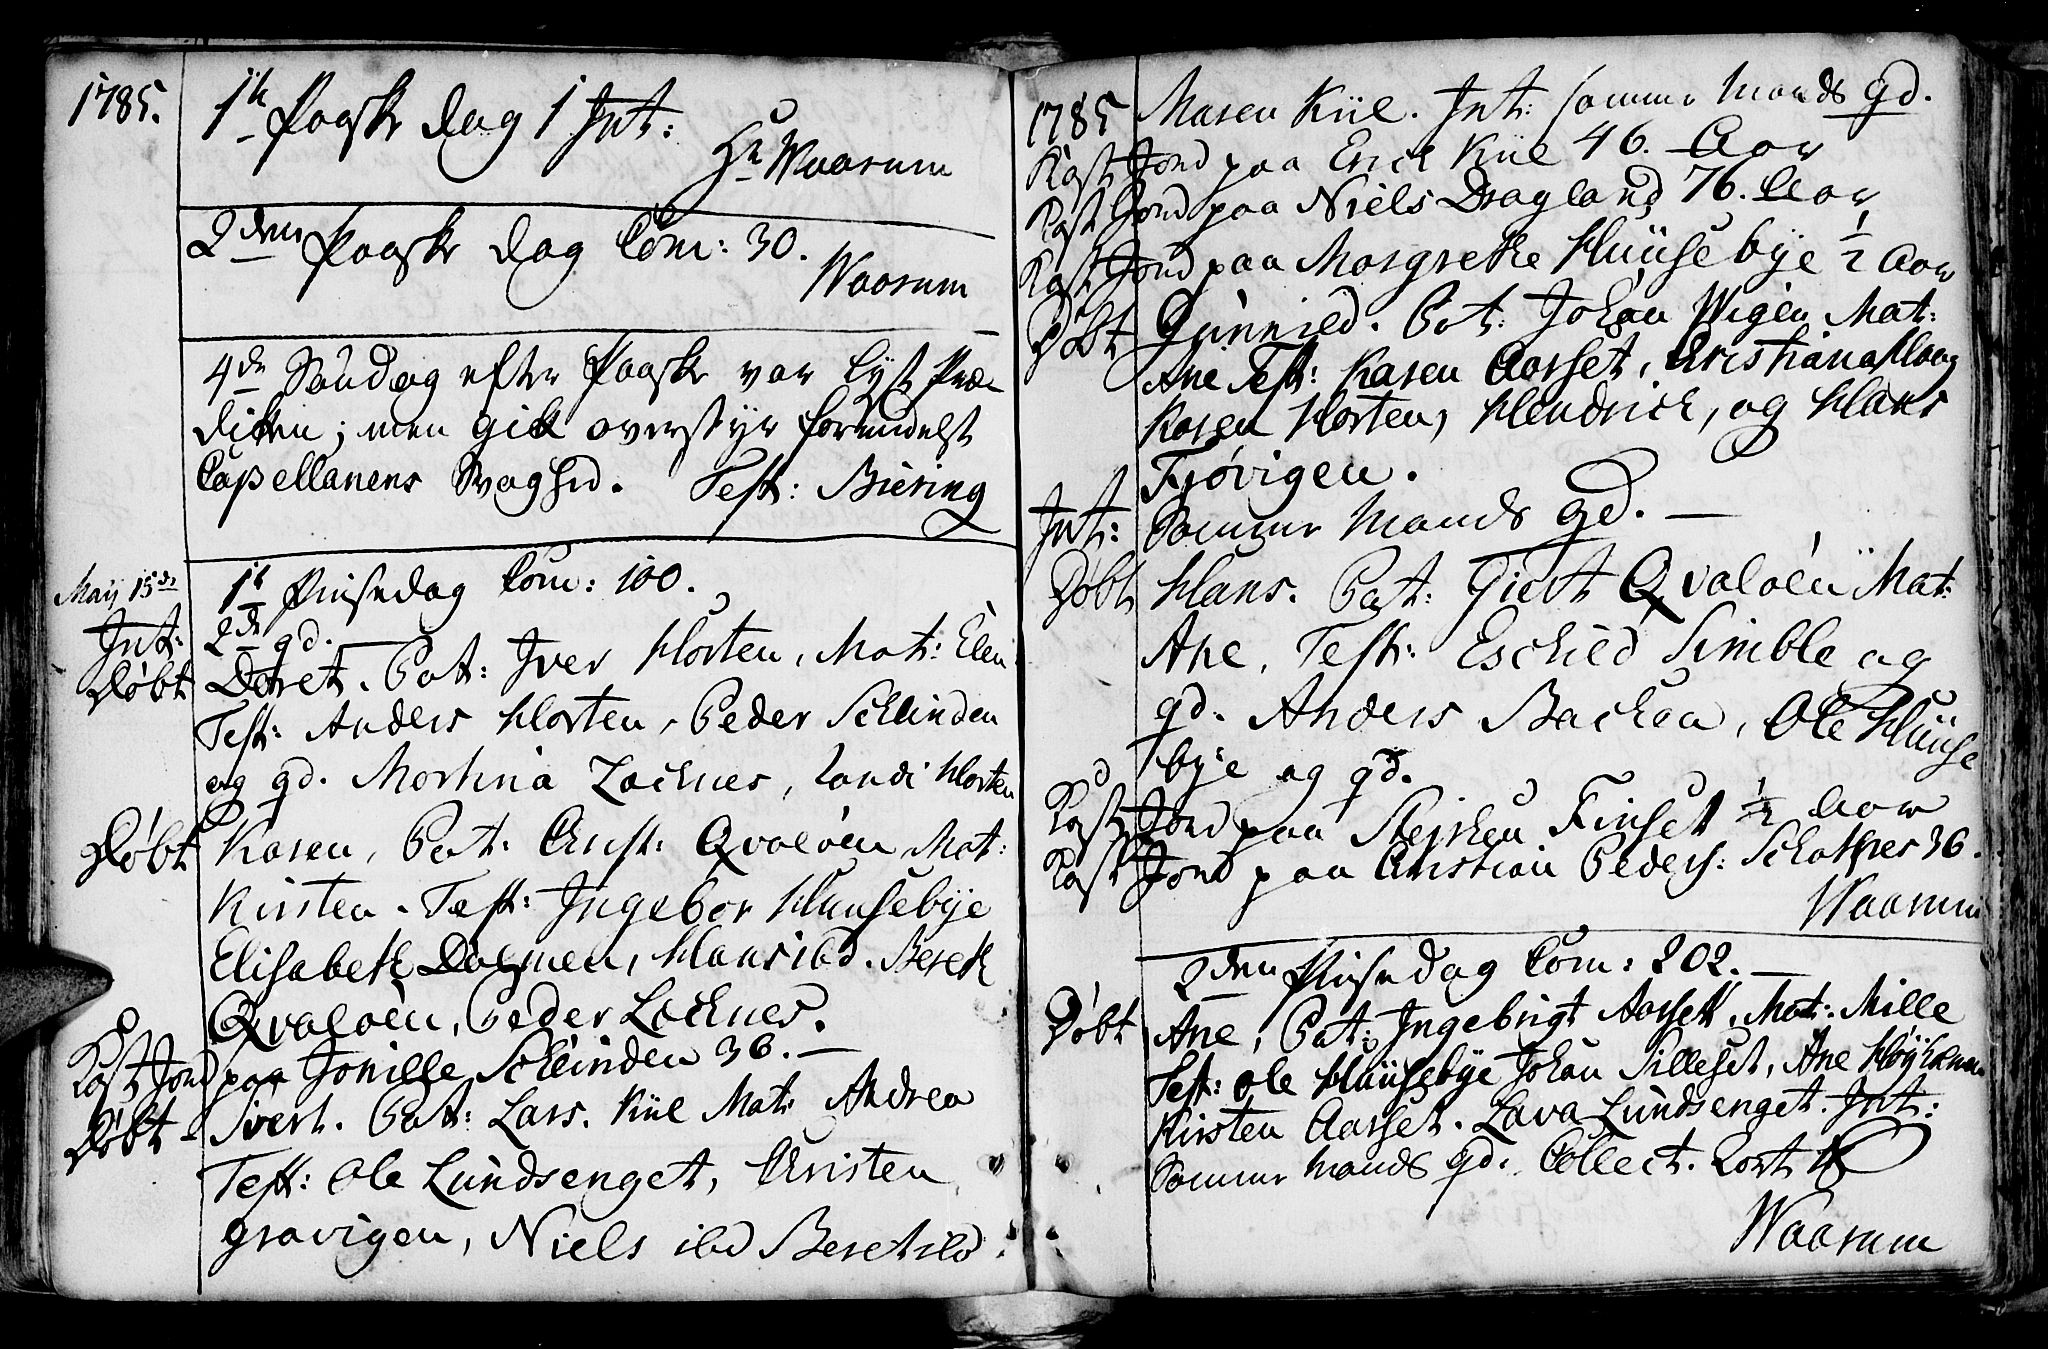 1785.
1te Paaske dag 1 Int:
Hr Waarum
2den Paaske dag Com: 30.
Waarum
4de Søndag efter Paaske var lyst Præ-
diken; men gik overstyr formedelst
Capellanens Svaghed. Test: Biering
Maij 15de 1te Pinsedag Com: 100.
Int: 2de gd.
Døbt Doret. Pat: Iver Horten, Mat: Elen
Test: Anders Horten, Peder Schlinden
og gd. Marhna Lochnes, Randi Horten
Døbt Karen, Pat. Christ: Qvaløen Mat:
Kirsten. Test: Ingebor Huusebye
Elisabeth Dalmen, Hans ibd. Bereth
Qvaløen, Peder Lochnes.
Kast Jord paa Jonille Schlinden 36.
Døbt Sivert. Pat: Lars Kiil Mat: Andrea
Test: Ole Lundsenget, Christen
Gravigen, Niels ibd Beret ibd.
1785 Maren Kiil. Int: samme Mands gd.
Kast Jord paa Erick Kiil 46. Aar
Kast Jord paa Niels Dragland 76. Aar
Kast Jord paa Margrethe Huusebye 1/2 Aar
Døbt Gunnild. Pat: Johan Wigen Mat:
Ane Test: Karen Aarset, Christiana Haag
Karen Horten, Hendrich, og Hans
Frøvigen.
Int: Samme Mands gd.
Døbt Hans. Pat: Giert Qvaløen Mat:
Ane, Test: Eschild Simble og
gd. Anders Bachen, Ole Huuse
bye og gd.
Kast Jord paa Finset 1/2 Aar
Kast Jord paa Christian Peders: Schathes 36.
Waarum
2den Pinsedag Com: 202.
Døbt Ane, Pat: Ingebrigt Aasset, Mat: Mille
Test: Ole Huusebye Johan Silleset, Ane Høyholmen
Kirsten Aarset. Lava Lundsenget. Int:
Samme Mands gd. Collect.
Waarum